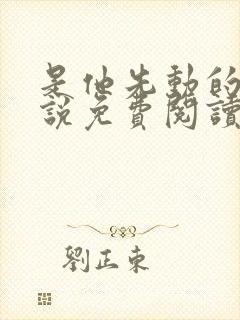 是他先動的
說免費閱讀
劉正東